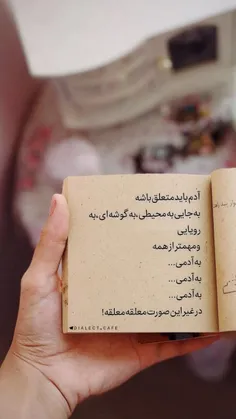 آدم باید متعلق باشه
به جایی به محیطی، به گوشه ای، به
رویایی
ومهمتر از همه
به آدمی...
به آدمی...
به آدمی...
در غیر این صورت معلقه معلقه!
DIALECT_CAFE